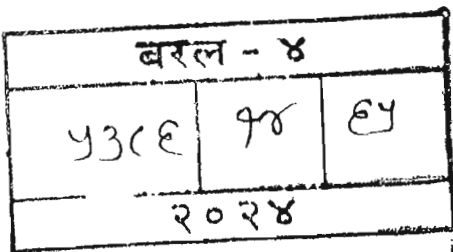 बरल - ४
५३८६ १४ ६५
२०२४